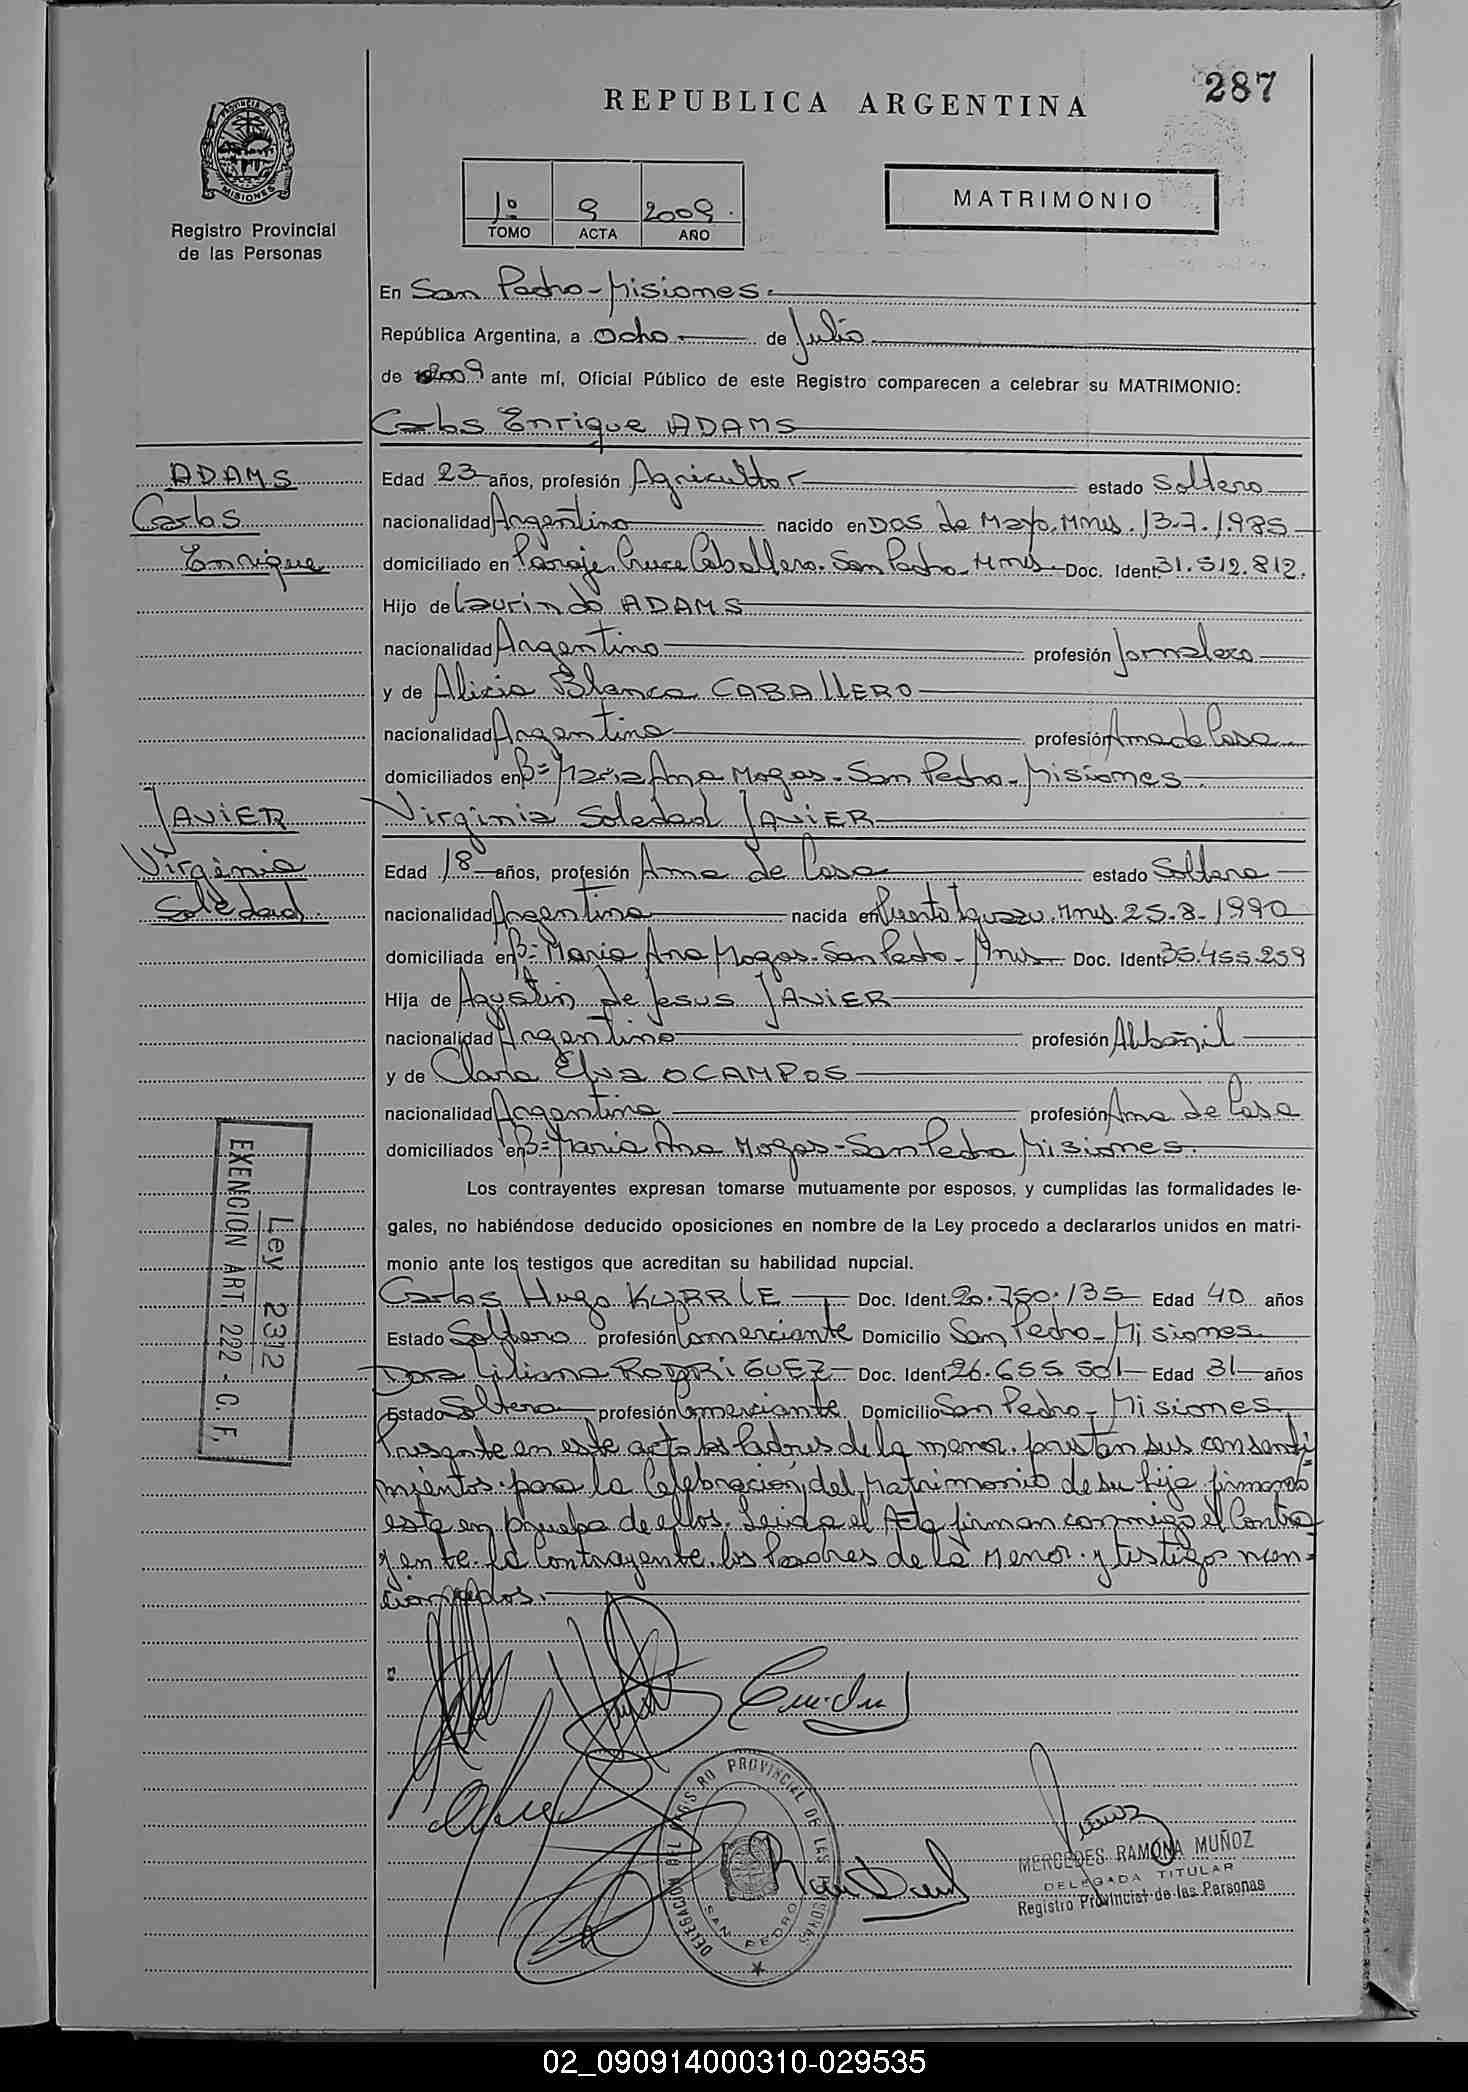 287
REPUBLICA ARGENTINA
PROVINCIA DE
MISIONES
Registro Provincial
de las Personas
1º 9 2009.
TOMO ACTA AÑO
MATRIMONIO
En San Pedro - Misiones.
República Argentina, a Ocho de Julio
de 2009 ante mí, Oficial Público de este Registro comparecen a celebrar su MATRIMONIO:
Carlos Enrique ADAMS
ADAMS
Carlos
Enrique
Edad 23 años, profesión Agricultor estado Soltero
nacionalidad Argentino nacido en Dos de Mayo. Mnes. 13.7.1985
domiciliado en Paraje. Cruce Caballero. San Pedro - Mnes. Doc. Ident. 31.512.812.
Hijo de Laurindo ADAMS
nacionalidad Argentino profesión Jornalero
y de Alicia Blanca CABAllERO
nacionalidad Argentina profesión Ama de Casa
domiciliados en Bº María Ana Mogas - San Pedro - Misiones.
JAViER
Virginia
Soledad.
Virginia Soledad JAViER
Edad 18 años, profesión Ama de Casa estado Soltera
nacionalidad Argentina nacida en Puerto Iguazu. Mnes. 25-8-1990
domiciliada en Bº María Ana Mogas - San Pedro - Mnes Doc. Ident. 35.455.259
Hija de Agustin de Jesus JAViER
nacionalidad Argentino profesión Albañil
y de Clara Elva OCAMPOS
nacionalidad Argentina profesión Ama de Casa
domiciliados en Bº María Ana Mogas - San Pedro Misiones.
Los contrayentes expresan tomarse mutuamente por esposos, y cumplidas las formalidades le-
gales, no habiéndose deducido oposiciones en nombre de la Ley procedo a declararlos unidos en matri-
monio ante los testigos que acreditan su habilidad nupcial.
Carlos Hugo Doc. Ident. 20.750.135 Edad 40 años
Estado Soltero profesión Comerciante Domicilio San Pedro - Misiones.
Dora Liliana RODRiGUEZ Doc. Ident. 26.655.501 Edad 31 años
Estado Soltera profesión Comerciante Domicilio San Pedro - Misiones.
Presente en este acto los Padres de la menor. prestan sus consenti
mientos para la Celebracion del Matrimonio de su hija firmando
esta en prueba de ellos. Leida el Acta firman conmigo el Contra
yente. la Contrayente. los Padres de la Menor. y testigos men=
cionados.
Ley 2312
EXENCION ART. 222 - C. F.
REGISTRO PROVINCIAL DE LAS PERSONAS
DELEGACION
SAN PEDRO
MERCEDES RAMONA MUÑOZ
DELEGADA TITULAR
Registro Provincial de las Personas
02_090914000310-029535